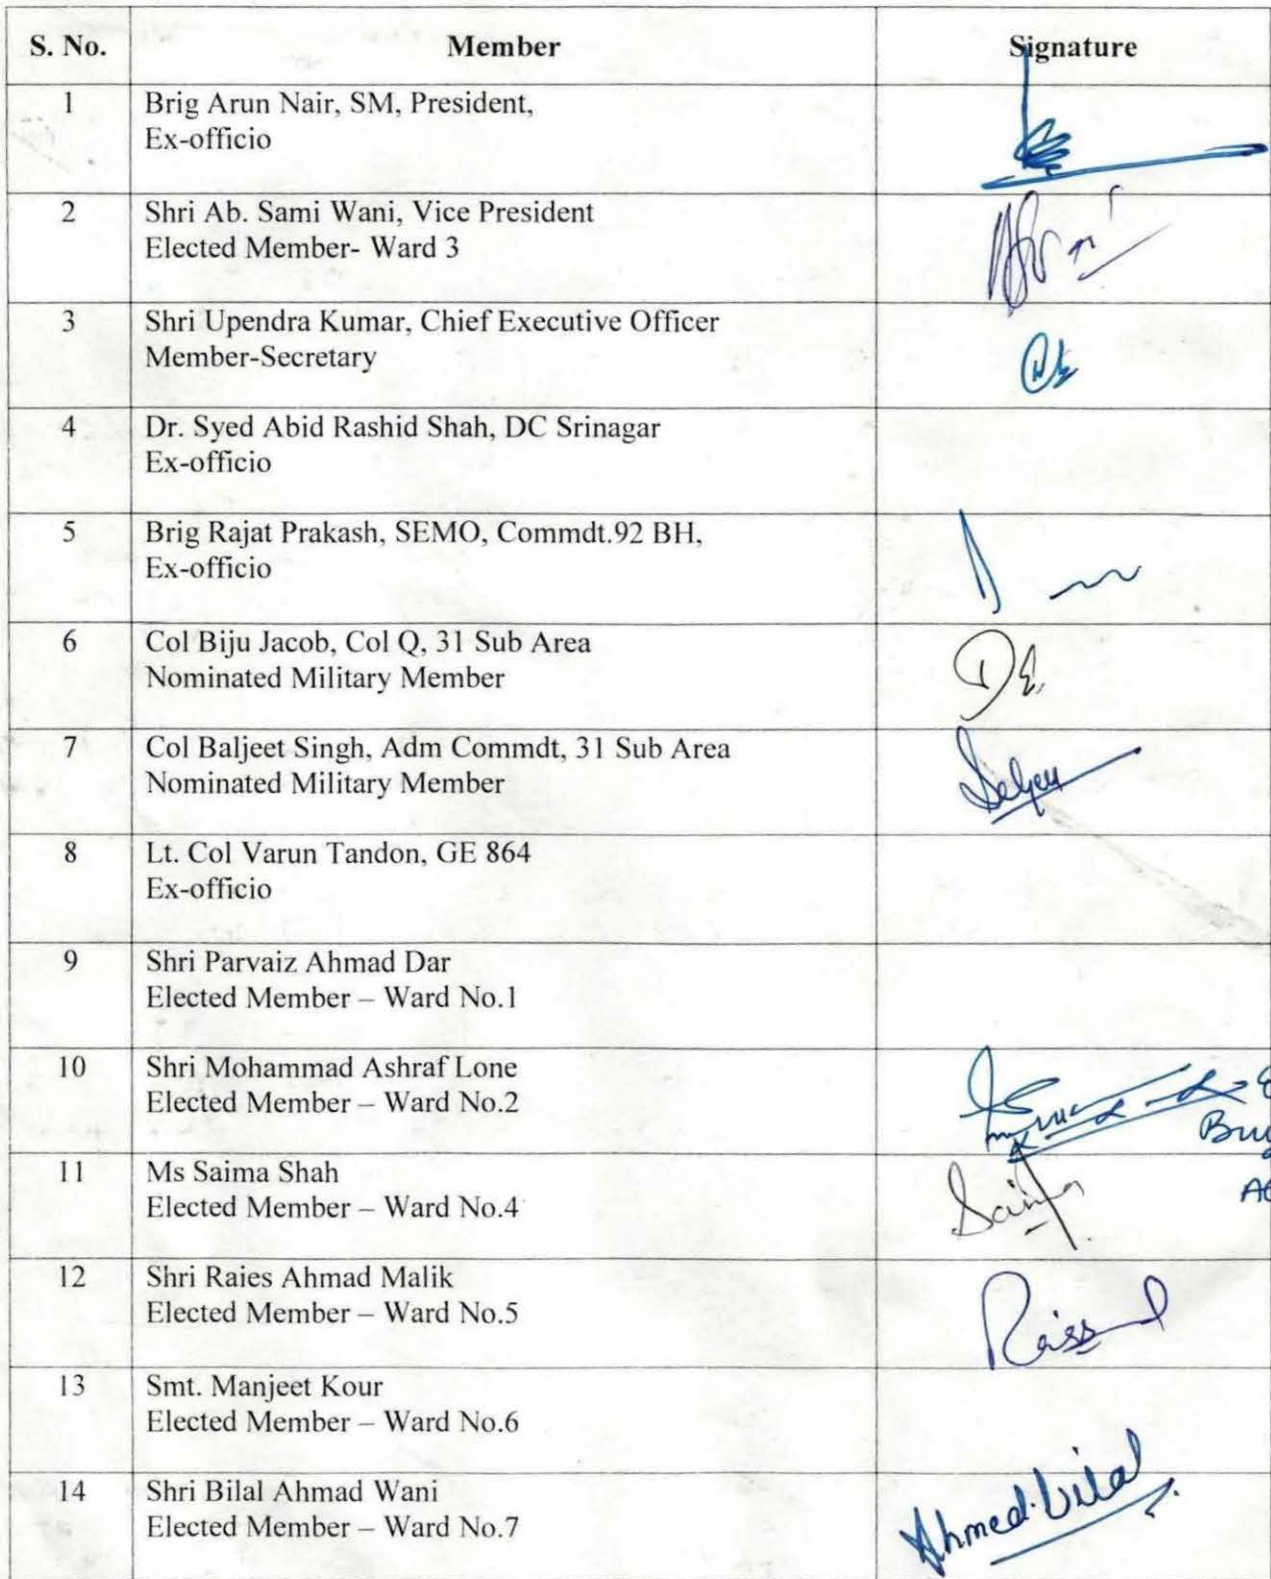 S. No. Member Signature
1 Brig Arun Nair, SM, President,
Ex-officio
2 Shri Ab. Sami Wani, Vice President
Elected Member- Ward 3
3 Shri Upendra Kumar, Chief Executive Officer
Member-Secretary
4 Dr. Syed Abid Rashid Shah, DC Srinagar
Ex-officio
5 Brig Rajat Prakash, SEMO, Commdt.92 BH,
Ex-officio
6 Col Biju Jacob, Col Q, 31 Sub Area
Nominated Military Member
7 Col Baljeet Singh, Adm Commdt, 31 Sub Area
Nominated Military Member
8 Lt. Col Varun Tandon, GE 864
Ex-officio
9 Shri Parvaiz Ahmad Dar
Elected Member – Ward No.1
10 Shri Mohammad Ashraf Lone
Elected Member – Ward No.2
11 Ms Saima Shah
Elected Member – Ward No.4
12 Shri Raies Ahmad Malik
Elected Member – Ward No.5
13 Smt. Manjeet Kour
Elected Member – Ward No.6
14 Shri Bilal Ahmad Wani
Elected Member – Ward No.7
Ahmed Bilal